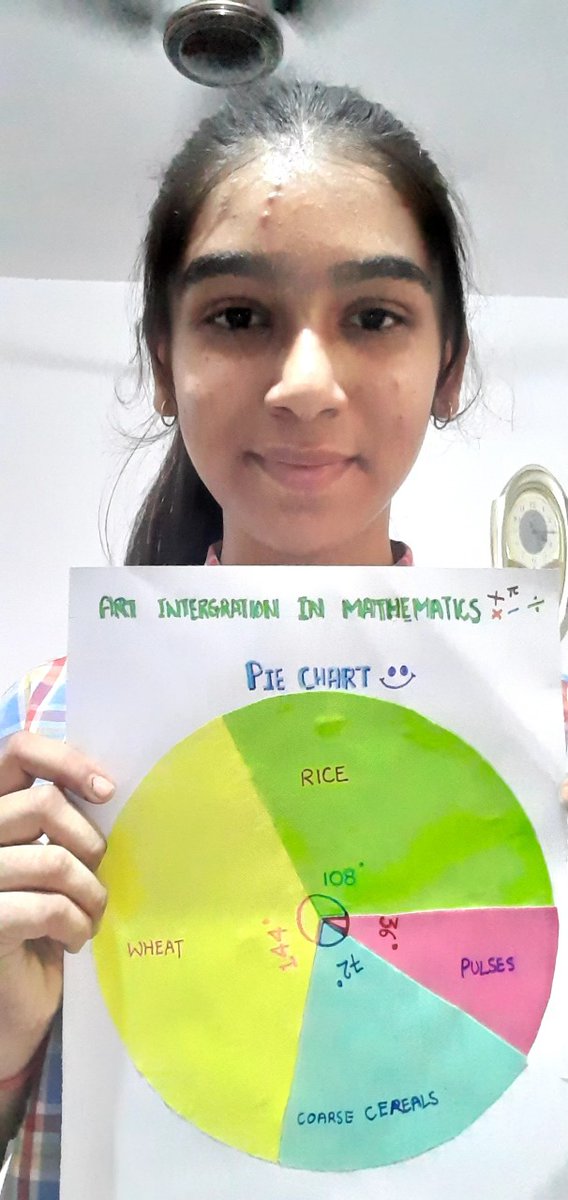 ART INTERGRATION IN MATHEMATICS + π × − ÷
PIE CHART
RICE
108°
WHEAT
144°
36°
PULSES
72°
COARSE CEREALS